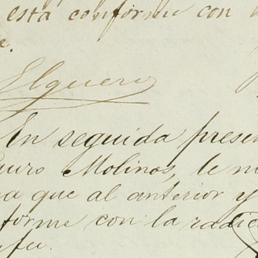 está conforme con
Elguero
En seguida presen
Molinos, le
que al anterior y
forme con la radic